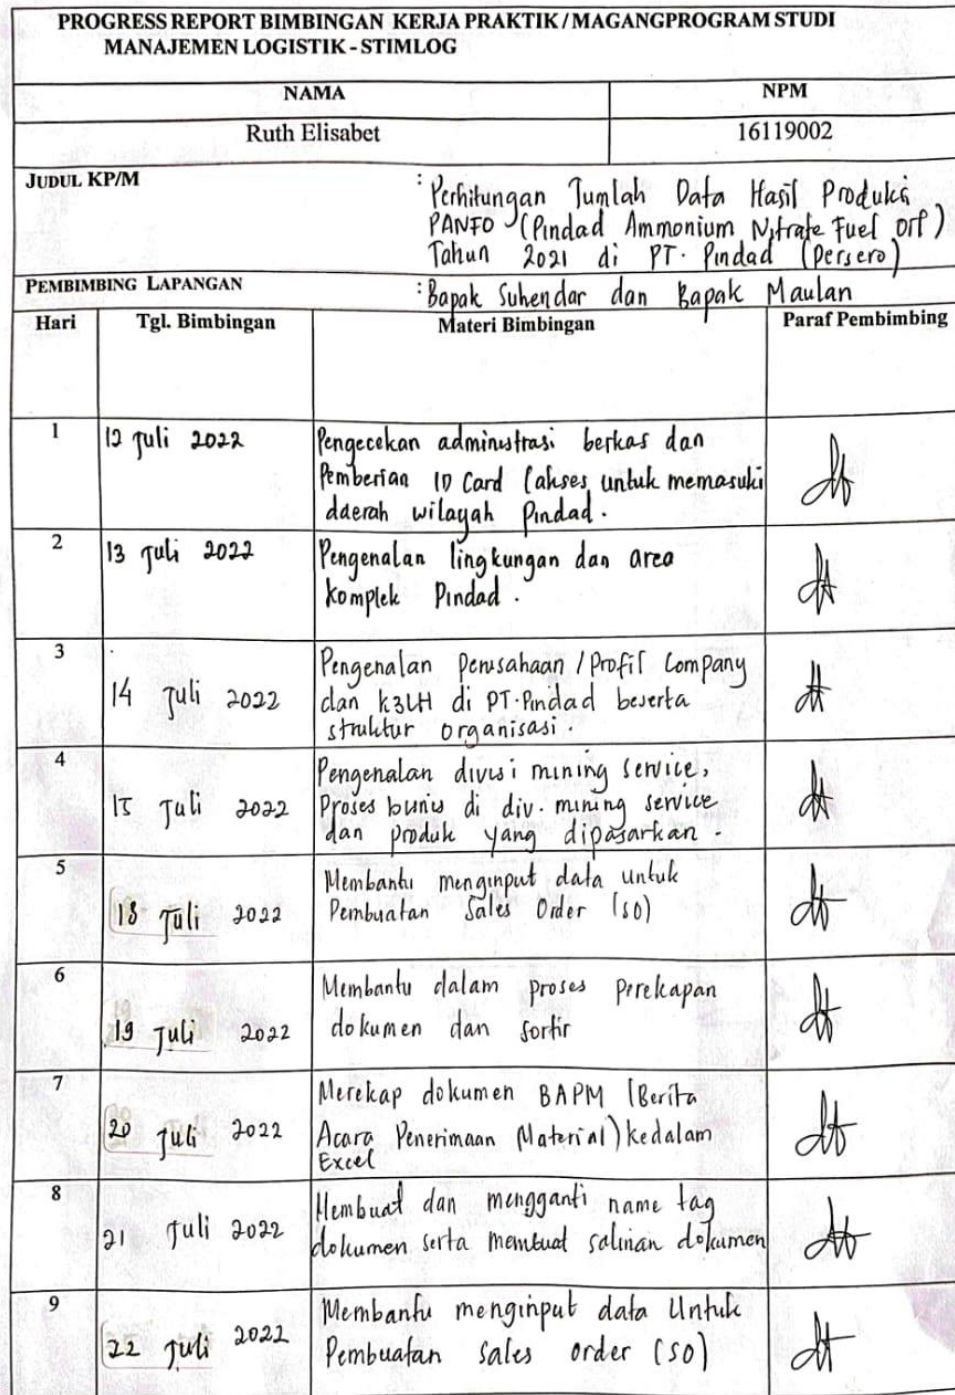 PROGRESS REPORT BIMBINGAN KERJA PRAKTIK / MAGANGPROGRAM STUDI
MANAJEMEN LOGISTIK - STIMLOG
NAMA NPM
Ruth Elisabet 16119002
JUDUL KP/M : Perhitungan Jumlah Data Hasil Produksi
PANFO (Pindad Ammonium Nitrate Fuel Oil)
Tahun 2021 di PT. Pindad (Persero)
PEMBIMBING LAPANGAN : Bapak Suhendar dan Bapak Maulan
Hari Tgl. Bimbingan Materi Bimbingan Paraf Pembimbing
1 12 Juli 2022 Pengecekan administrasi berkas dan
Pemberian ID Card (akses untuk memasuki
daerah wilayah Pindad.
2 13 Juli 2022 Pengenalan lingkungan dan area
komplek Pindad.
3 14 Juli 2022 Pengenalan perusahaan / Profil Company
dan K3LH di PT. Pindad beserta
struktur organisasi.
4 15 Juli 2022 Pengenalan divisi mining service,
Proses bisnis di div. mining service
dan produk yang dipasarkan.
5 18 Juli 2022 Membantu menginput data untuk
Pembuatan Sales Order (SO)
6 19 Juli 2022 Membantu dalam proses perekapan
dokumen dan sortir
7 20 Juli 2022 Merekap dokumen BAPM (Berita
Acara Penerimaan Material) kedalam
Excel
8 21 Juli 2022 Membuat dan mengganti name tag
dokumen serta membuat salinan dokumen
9 22 Juli 2022 Membantu menginput data Untuk
Pembuatan sales order (SO)